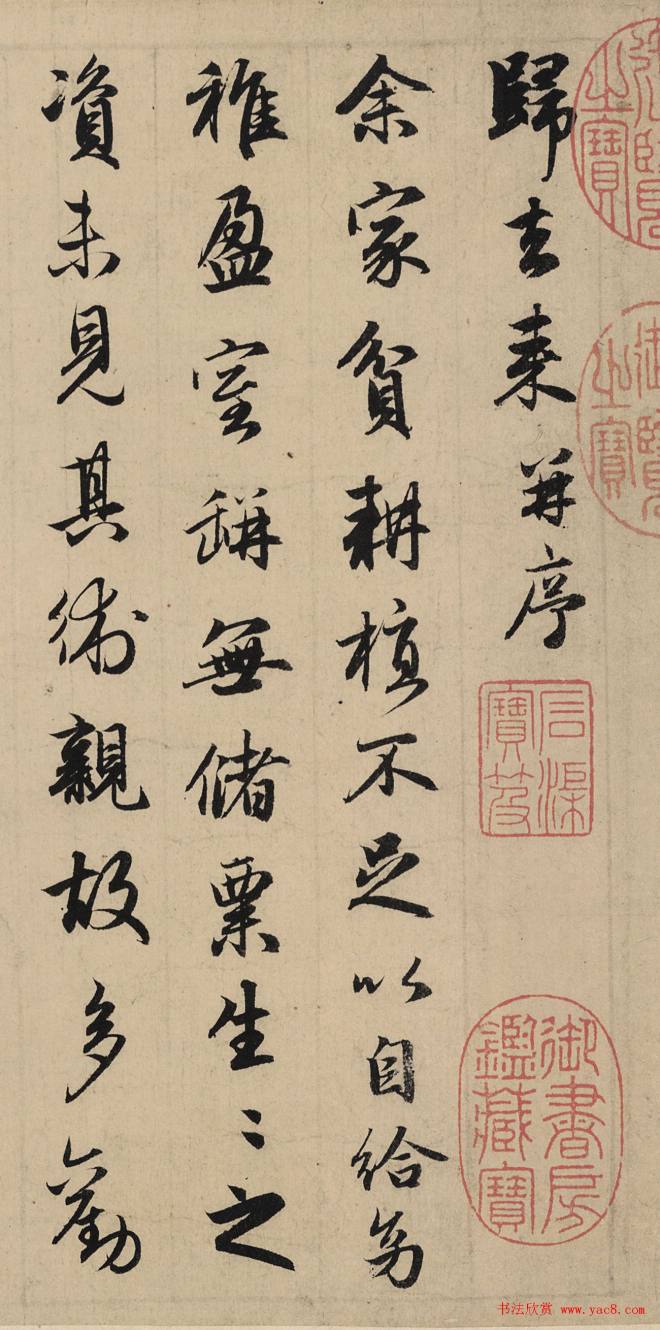 歸去来并序
余家貧耕植不足以自給幼
稚盈室缾無儲粟生〻之
資未見其術親故多勸
覽
之寶
御覽
之寶
石渠
寶笈
御書房
鑑藏寶
书法欣赏 www.yac8.com